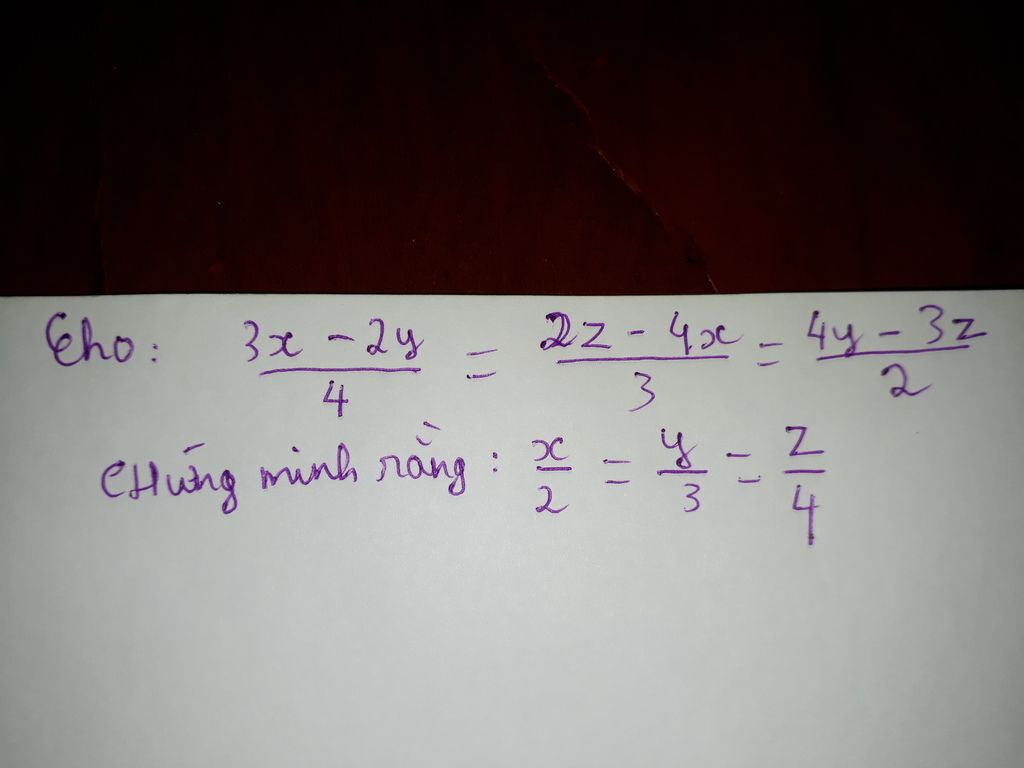 Cho: (3x - 2y)/4 = (2z - 4x)/3 = (4y - 3z)/2
CHứng minh rằng: x/2 = y/3 = z/4